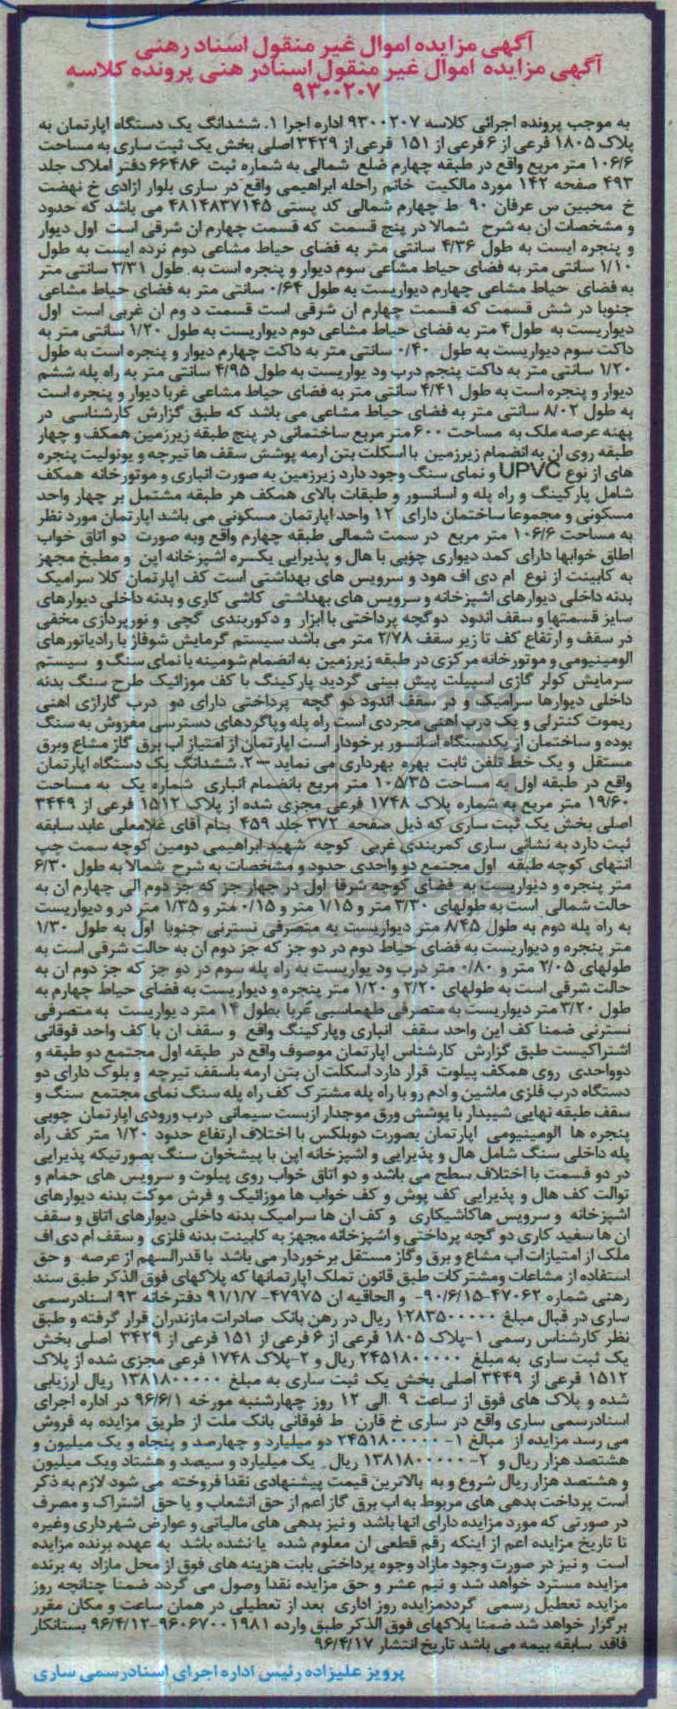 آگهی مزایده اموال غیر منقول اسناد رهنی
آگهی مزایده اموال غیر منقول اسنادر هنی پرونده کلاسه
۹۳۰۰۲۰۷
به موجب پرونده اجرائی کلاسه ۹۳۰۰۲۰۷ اداره اجرا ۱. ششدانگ یک دستگاه اپارتمان به
پلاک ۱۸۰۵ فرعی از ۶ فرعی از ۱۵۱ فرعی از ۳۴۲۹ اصلی بخش یک ثبت ساری به مساحت
۱۰۶/۶ متر مربع واقع در طبقه چهارم ضلع شمالی به شماره ثبت ۶۶۴۸۶ دفتر املاک جلد
۴۹۳ صفحه ۱۴۲ مورد مالکیت خانم راحله ابراهیمی واقع در ساری بلوار ازادی خ نهضت
خ محبین س عرفان ۹۰ ط چهارم شمالی کد پستی ۴۸۱۴۸۳۷۱۴۵ می باشد که حدود
و مشخصات ان به شرح شمالا در پنج قسمت که قسمت چهارم ان شرقی است اول دیوار
و پنجره ایست به طول ۴/۳۶ سانتی متر به فضای حیاط مشاعی دوم نرده ایست به طول
۱/۱۰ سانتی متر به فضای حیاط مشاعی سوم دیوار و پنجره است به طول ۳/۳۱ سانتی متر
به فضای حیاط مشاعی چهارم دیواریست به طول ۰/۶۴ سانتی متر به فضای حیاط مشاعی
جنوبا در شش قسمت که قسمت چهارم ان شرقی است قسمت د وم ان غربی است اول
دیواریست به طول ۴ متر به فضای حیاط مشاعی دوم دیواریست به طول ۱/۲۰ سانتی متر به
داکت سوم دیواریست به طول ۰/۴۰ سانتی متر به داکت چهارم دیوار و پنجره است به طول
۱/۲۰ سانتی متر به داکت پنجم درب ود یواریست به طول ۴/۹۵ سانتی متر به راه پله ششم
دیوار و پنجره است به طول ۴/۴۱ سانتی متر به فضای حیاط مشاعی غربا دیوار و پنجره است
به طول ۸/۰۲ سانتی متر به فضای حیاط مشاعی می باشد که طبق گزارش کارشناسی در
پهنه عرصه ملک به مساحت ۶۰۰ متر مربع ساختمانی در پنج طبقه زیرزمین همکف و چهار
طبقه روی ان به انضمام زیرزمین با اسکلت بتن ارمه پوشش سقف ها تیرچه و یونولیت پنجره
های از نوع UPVC و نمای سنگ وجود دارد زیرزمین به صورت انباری و موتورخانه همکف
شامل پارکینگ و راه پله و اسانسور و طبقات بالای همکف هر طبقه مشتمل بر چهار واحد
مسکونی و مجموعا ساختمان دارای ۱۲ واحد اپارتمان مسکونی می باشد اپارتمان مورد نظر
به مساحت ۱۰۶/۶ متر مربع در سمت شمالی طبقه چهارم واقع وبه صورت دو اتاق خواب
اطلق خوابها دارای کمد دیواری چوبی با هال و پذیرایی یکسره اشپزخانه اپن و مطبخ مجهز
به کابینت از نوع ام دی اف هود و سرویس های بهداشتی است کف اپارتمان کلا سرامیک
بدنه داخلی دیوارهای اشپزخانه و سرویس های بهداشتی کاشی کاری و بدنه داخلی دیوارهای
سایز قسمتها و سقف اندود دوگچه پرداختی با ابزار و دکوربندی گچی و نورپردازی مخفی
در سقف و ارتفاع کف تا زیر سقف ۲/۷۸ متر می باشد سیستم گرمایش شوفاژ با رادیاتورهای
الومینیومی و موتورخانه مرکزی در طبقه زیرزمین به انضمام شومینه با نمای سنگ و سیستم
سرمایش کولر گازی اسپیلت پیش بینی گردید پارکینگ با کف موزائیک طرح سنگ بدنه
داخلی دیوارها سرامیک و در سقف اندود دو گچه پرداختی دارای دو درب گاراژی اهنی
ریموت کنترلی و یک درب اهنی مجردی است راه پله وپاگردهای دسترسی مفروش به سنگ
بوده و ساختمان از یکدستگاه اسانسور برخودار است اپارتمان از امتیاز اب برق گاز مشاع وبرق
مستقل و یک خط تلفن ثابت بهره بهرداری می نماید – ۲. ششدانگ یک دستگاه اپارتمان
واقع در طبقه اول به مساحت ۱۰۵/۳۵ متر مربع بانضمام انباری شماره یک به مساحت
۱۹/۶۰ متر مربع به شماره پلاک ۱۷۴۸ فرعی مجزی شده از پلاک ۱۵۱۲ فرعی از ۳۴۴۹
اصلی بخش یک ثبت ساری که ذیل صفحه ۳۷۲ جلد ۴۵۹ بنام آقای غلامعلی عابد سابقه
ثبت دارد به نشانی ساری کمربندی غربی کوچه شهید ابراهیمی دومین کوچه سمت چپ
انتهای کوچه طبقه اول مجتمع دو واحدی حدود و مشخصات به شرح شمالا به طول ۶/۳۰
متر پنجره و دیواریست به فضای کوچه شرقا اول در چهار جز که جز دوم الی چهارم ان به
حالت شمالی است به طولهای ۳/۳۰ متر و ۱/۱۵ متر و ۰/۱۵ متر و ۱/۳۵ متر در و دیواریست
به راه پله دوم به طول ۸/۴۵ متر دیواریست به متصرفی نسترنی جنوبا اول به طول ۱/۳۰
متر پنجره و دیواریست به فضای حیاط دوم در دو جز که جز دوم ان به حالت شرقی است به
طولهای ۲/۰۵ متر و ۰/۸۰ متر درب ود یواریست به راه پله سوم در دو جز که جز دوم ان به
حالت شرقی است به طولهای ۲/۲۰ و ۱/۲۰ متر پنجره و دیواریست به فضای حیاط چهارم به
طول ۳/۲۰ متر دیواریست به متصرفی طهماسبی غربا بطول ۱۴ متر د یواریست به متصرفی
نسترنی ضمنا کف این واحد سقف انباری وپارکینگ واقع و سقف ان با کف واحد فوقانی
اشتراکیست طبق گزارش کارشناس اپارتمان موصوف واقع در طبقه اول مجتمع دو طبقه و
دوواحدی روی همکف پیلوت قرار دارد اسکلت ان بتن ارمه باسقف تیرچه و بلوک دارای دو
دستگاه درب فلزی ماشین و ادم رو با راه پله مشترک کف راه پله سنگ نمای مجتمع سنگ و
سقف طبقه نهایی شیبدار با پوشش ورق موجدار ازبست سیمانی درب ورودی اپارتمان چوبی
پنجره ها الومینیومی اپارتمان بصورت دوبلکس با اختلاف ارتفاع حدود ۱/۲۰ متر کف راه
پله داخلی سنگ شامل هال و پذیرایی و اشپزخانه اپن با پیشخوان سنگ بصورتیکه پذیرایی
در دو قسمت با اختلاف سطح می باشد و دو اتاق خواب روی پیلوت و سرویس های حمام و
توالت کف هال و پذیرایی کف پوش و کف خواب ها موزائیک و فرش موکت بدنه دیوارهای
اشپزخانه و سرویس هاکاشیکاری و کف ان ها سرامیک بدنه داخلی دیوارهای اتاق و سقف
ان ها سفید کاری دو گچه پرداختی و اشپزخانه مجهز به کابینت بدنه فلزی و سقف ام دی اف
ملک از امتیازات اب مشاع و برق وگاز مستقل برخوردار می باشد با قدرالسهم از عرصه و حق
استفاده از مشاعات ومشترکات طبق قانون تملک اپارتمانها که پلاکهای فوق الذکر طبق سند
رهنی شماره ۴۷۰۶۲-۹۰/۶/۱۵ و الحاقیه ان ۴۷۹۷۵- ۹۱/۱/۷ دفترخانه ۹۳ اسنادرسمی
ساری در قبال مبلغ ۱۲۸۳۵۰۰۰۰۰ ریال در رهن بانک صادرات مازندران قرار گرفته و طبق
نظر کارشناس رسمی ۱-پلاک ۱۸۰۵ فرعی از ۶ فرعی از ۱۵۱ فرعی از ۳۴۲۹ اصلی بخش
یک ثبت ساری به مبلغ ۲۴۵۱۸۰۰۰۰۰ ریال و ۲-پلاک ۱۷۴۸ فرعی مجزی شده از پلاک
۱۵۱۲ فرعی از ۳۴۴۹ اصلی بخش یک ثبت ساری به مبلغ ۱۳۸۱۸۰۰۰۰۰ ریال ارزیابی
شده و پلاک های فوق از ساعت ۹ الی ۱۲ روز چهارشنبه مورخه ۹۶/۶/۱ در اداره اجرای
اسنادرسمی ساری واقع در ساری خ قارن ط فوقانی بانک ملت از طریق مزایده به فروش
می رسد مزایده از مبالغ ۱- ۲۴۵۱۸۰۰۰۰۰ دو میلیارد و چهارصد و پنجاه و یک میلیون و
هشتصد هزار ریال و ۲- ۱۳۸۱۸۰۰۰۰۰ ریال یک میلیارد و سیصد و هشتاد ویک میلیون
و هشتصد هزار ریال شروع و به بالاترین قیمت پیشنهادی نقدا فروخته می شود لازم به ذکر
است پرداخت بدهی های مربوط به اب برق گاز اعم از حق انشعاب و یا حق اشتراک و مصرف
در صورتی که مورد مزایده دارای انها باشد و نیز بدهی های مالیاتی و عوارض شهرداری وغیره
تا تاریخ مزایده اعم از اینکه رقم قطعی ان معلوم شده یا نشده باشد به عهده برنده مزایده
است و نیز در صورت وجود مازاد وجوه پرداختی بابت هزینه های فوق از محل مازاد به برنده
مزایده مسترد خواهد شد و نیم عشر و حق مزایده نقدا وصول می گردد ضمنا چنانچه روز
مزایده تعطیل رسمی گرددمزایده روز اداری بعد از تعطیلی در همان ساعت و مکان مقرر
برگزار خواهد شد ضمنا پلاکهای فوق الذکر طبق وارده ۹۶۰۶۷۰۰۱۹۸۱-۹۶/۴/۱۲ بستانکار
فاقد سابقه بیمه می باشد تاریخ انتشار ۹۶/۴/۱۷
پرویز علیزاده رئیس اداره اجرای اسنادرسمی ساری